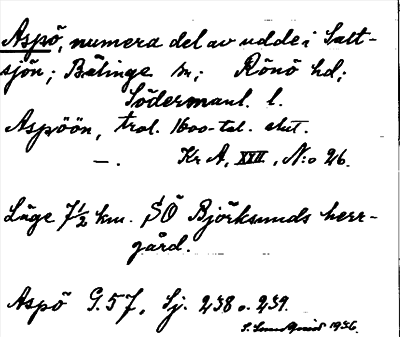 Aspö, numera del av udde i Salt-
sjön; Bälinge sn; Rönö hd;
Södermanl. l.
Aspöön, trol. 1600-tal. slut.
—. Kr A, XVII, N:o 26.
Läge 7 1/2 km. SÖ Björksunds herr-
gård.
Aspö G.57, Sj. 238 o. 239.
1936.